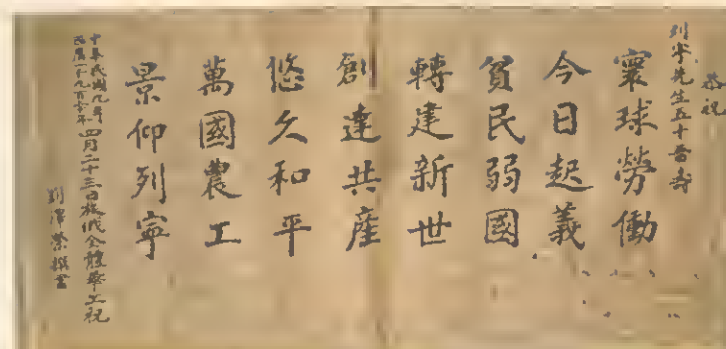 恭祝
列寧先生五十晉壽
寰球勞働
今日起義
貧民弱國
轉建新世
創達共產
悠久和平
萬國農工
景仰列寧
中華民國九年
西曆一千九百二十年
四月二十三日旅俄全體華工祝
劉澤榮撰書